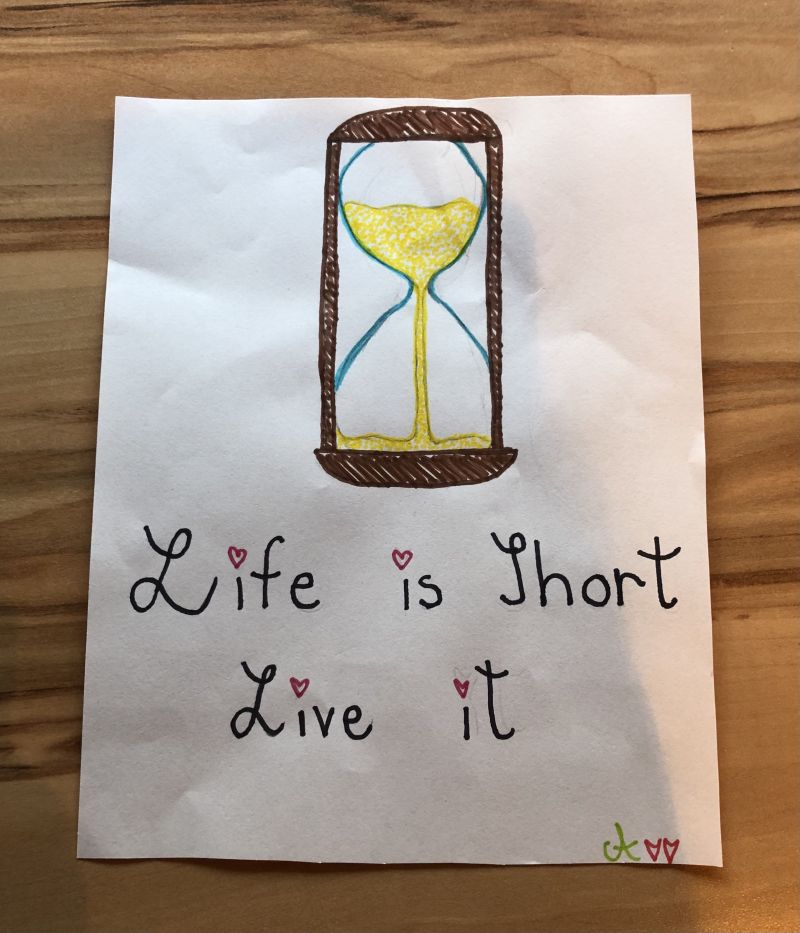 Life is Short
Live it
A